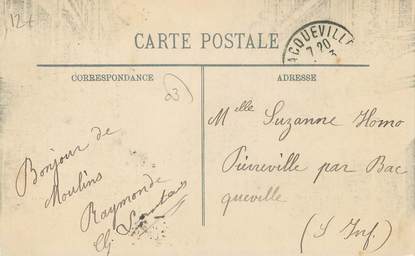 12+
CARTE POSTALE
ACQUEVILLE
7 20
CORRESPONDANCE
ADRESSE
Bonjour de
Moulins
Raymonde
Melle Suzanne Homo
Pierreville par Bac
queville
(S Inf.)